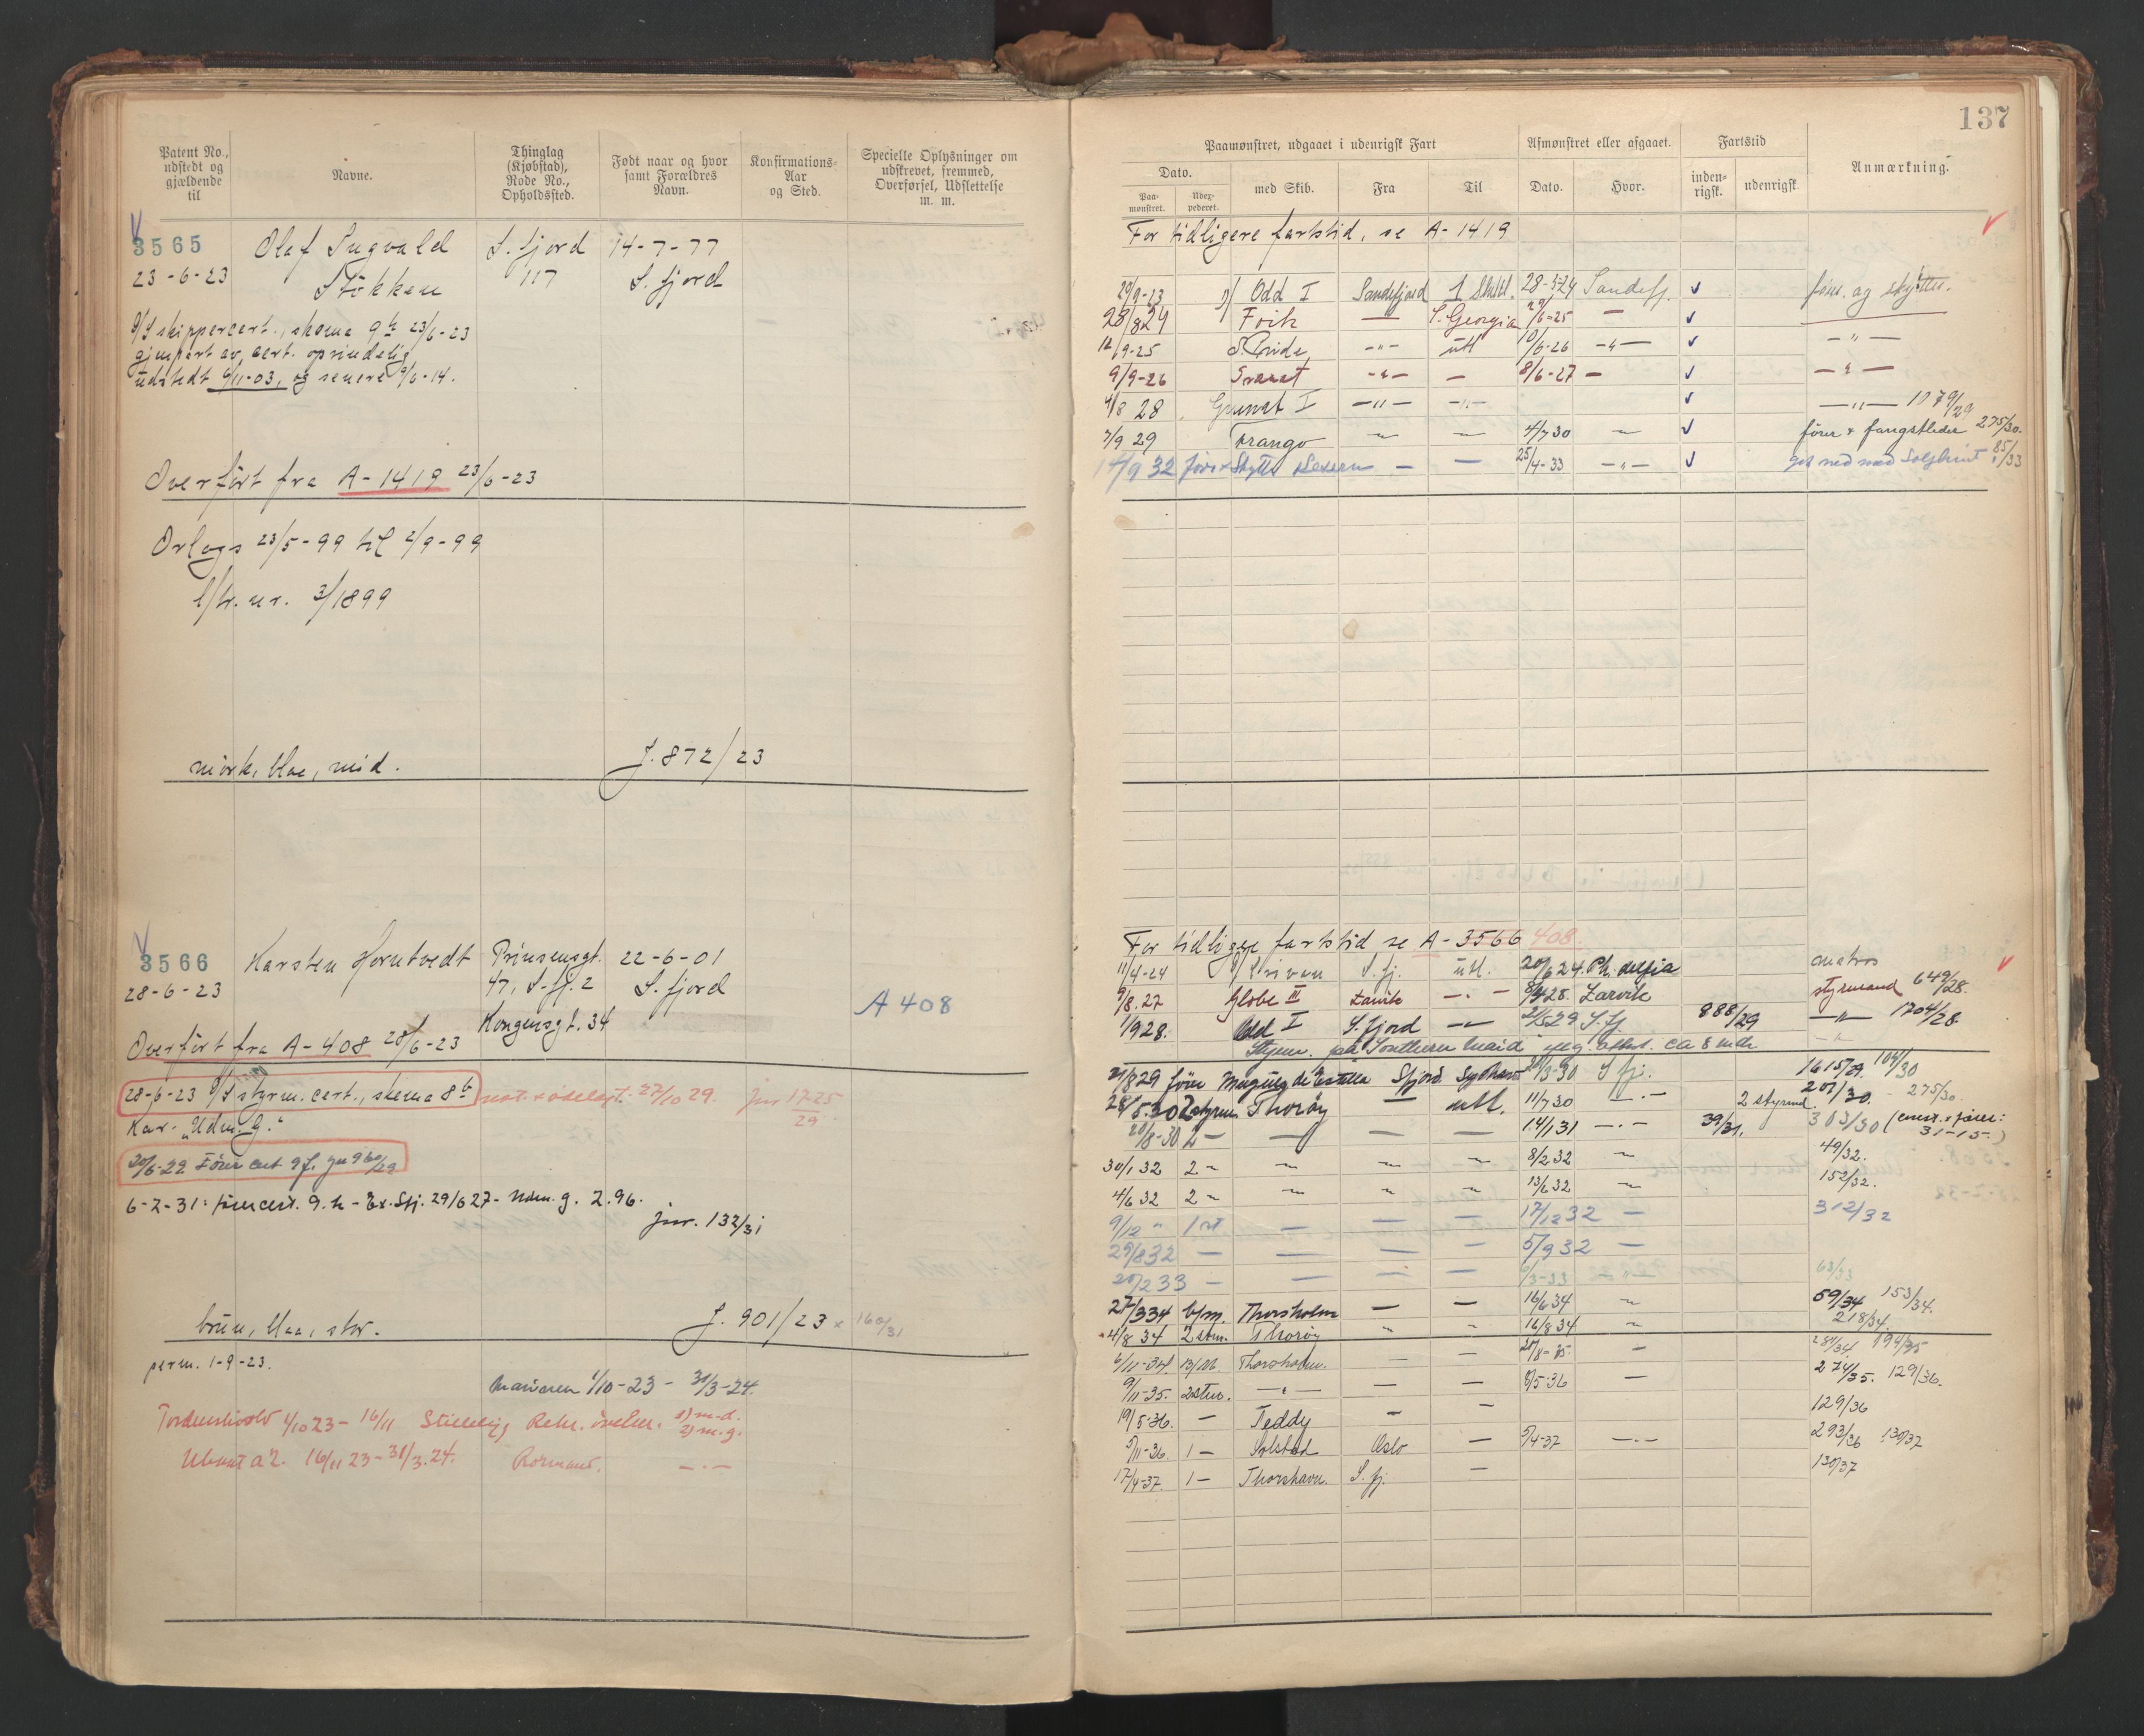 Patent No., udstedt og gjældende til
Navne.
Thinglag (Kjøbstad), Rode No., Opholdssted.
Født naar og hvor samt Forældres Navn.
Konfirmations-Aar og Sted.
Specielle Oplysninger om udskrevet, fremmed, Overførsel, Udslettelse m. m.
3565 Olaf Ingvald S. fjord 14-7-77
23-6-23 Stökken 117 S. fjord
D/S skippercert., skema 9h 23/6-23
gjenpart av cert. oprindelig
udstedt 6/11-03, og senere 9/6-14.
Overført fra A-1419 23/6-23
Orlogs 23/5-99 til 2/9-99
l/nr. 3/1899
mörk, blaa, mid. J. 872/23
3566 Karsten Horntvedt Prinsensgt. 22-6-01
28-6-23 47, S. fj. 2 S. fjord
A 408
Kongensgt. 34
Overført fra A-408 28/6-23
28-6-23 D/S styrm. cert., skema 8b mot. ødelagt. 27/10 29. jnr 1725/29
Kar. "Udm. g."
20/6-29 Förer cert 9 f. jnr 960/29
6-2-31: förercert. 9. h - Ex. Sfj. 29/6 27 - Udm. g. 2.96.
jnr. 132/31
brun, blaa, stor. J. 901/23 x 160/31
perm. 1-9-23.
Marinen 1/10-23 - 31/3-24.
Tordenskiold 1/10 23 - 16/11 Rekr. övelse. 1) m.d. 2) m.g.
A2. 16/11 23 - 31/3.24. Rormand. - . -
137
Paamønstret, udgaaet i udenrigsk Fart
Afmønstret eller afgaaet.
Fartstid
Anmærkning.
Dato.
med Skib.
Fra
Til
Dato.
Hvor.
inden-rigsk.
udenrigsk
Paa-mønstret.
Udex-pederet.
For tidligere fartstid, se A-1419
29/9-23 Odd I Sandefjord 28-5-24 Sandefj. fører og skytter.
28/8 24 Foik — S. Georgia 2/6-25 —
12/9-25 -"- utl 10/6-26 -"- -"-
9/9-26 Svarat -"- — 8/6-27 — -"-
4/8 28 Grunat I -"- -"- -"- 1079/29
7/9 29 Orango — — 4/7 30 — förer & fangstleder 275/30.
14/9 32 förer & Skytter — — 25/4-33 -"- 85/33
For tidligere fartstid se A-3566 408.
11/4-24 S. fj. utl. 20/6 24. Ph. delfia matros
9/8.27 Globe III Larvik — 28. Larvik styrmand 649/28.
1/9 28. Odd I S. fjord — 2/5 29 S. fj 888/29 -"- 1704/28
Styrm. paa Southern Maid ca 8 mdr
21/8 29 förer Sfjord 20/3-30 S fj. 1615/29. 104/30
28/5.30 2 styrm Thorøy — utl. 11/7 30 — 2 styrmd 207/30. - 275/30.
20/8-30 2 — — — — 14/1 31 — 39/31. 303/30
30/1 32 2 " " " " 8/2 32 " 49/32.
4/6 32 2 " " " " 13/6 32 " 152/32.
9/12 " 1 st — — — 17/12 32 — 312/32
29/8 32 — — — — 5/9 32 —
20/2 33 — — — — 6/3-33 63/33
27/3 34 b/m. Thorsholm — — 16/6 34 " 59/34 153/34.
4/8 34 2 stm. Thorøy " " 16/8 34 " 218/34.
6/11-34. Thorsholm. — — — 194/35
9/11-35. 2 stm. -"- — — 8/5-36 — 274/35. 129/36.
19/5-36. — Teddy — — 129/36
5/11-36. 1 — Solstad Oslo — 5/4-37 — 293/36 130/37
17/4-37. 1 — Thorshavn. S. fj. — 130/37